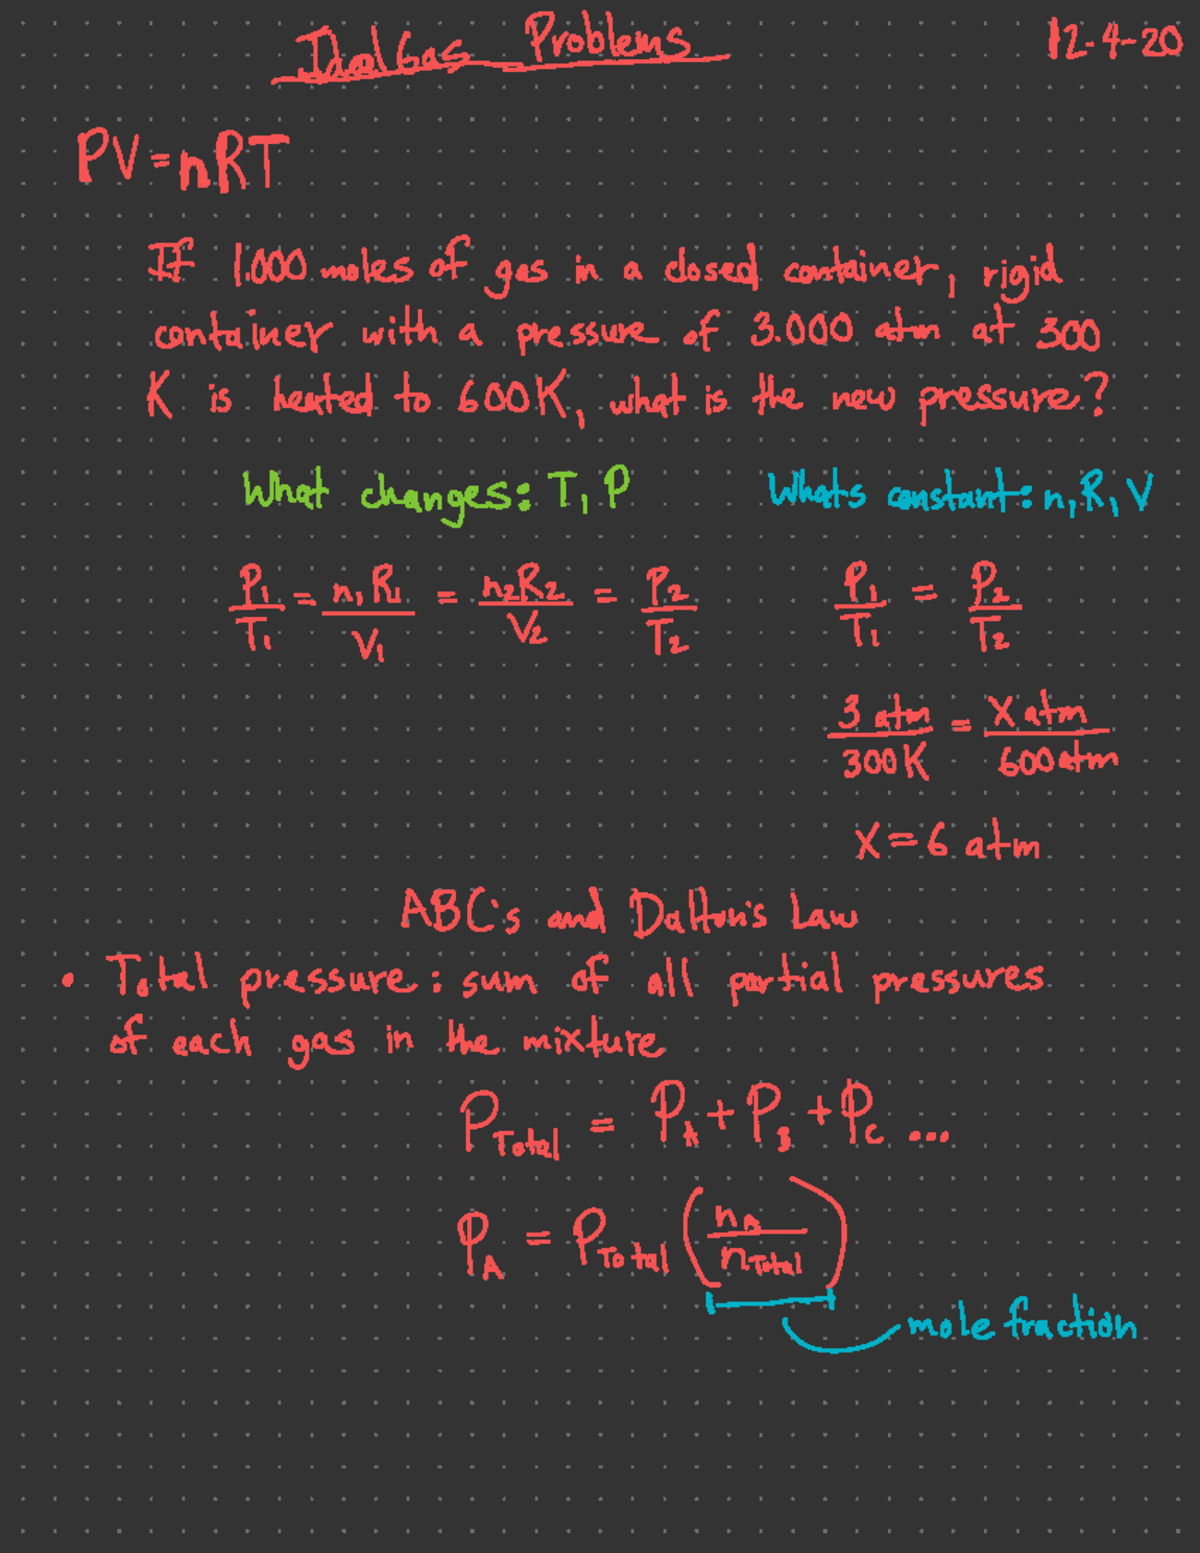 Ideal Gas Problems
12-4-20
PV=nRT
If 1.000 moles of gas in a closed container, rigid
container with a pressure of 3.000 atm at 300
K is heated to 600K, what is the new pressure?
What changes: T, P
Whats constant: n, R, V
P₁/T₁ = n₁R₁/V₁ = n₂R₂/V₂ = P₂/T₂
P₁/T₁ = P₂/T₂
3 atm/300K = X atm/600atm
X=6 atm
ABC's and Dalton's Law
• Total pressure: sum of all partial pressures
of each gas in the mixture
P_Total = P_A + P_B + P_C ...
P_A = P_Total (n_A/n_Total)
mole fraction